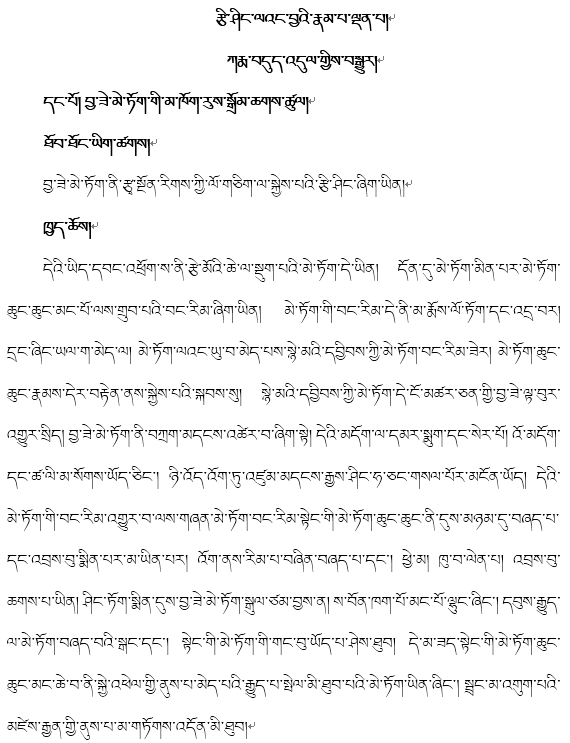 རྩི་ཤིང་ལའང་བྱའི་རྣམ་པ་ལྡན་པ།
ཀརྨ་བདུད་འདུལ་གྱིས་བསྒྱུར།
དང་པོ། བྱ་ཟེ་མེ་ཏོག་གི་མ་ཁོག་རུས་སྒྲོམ་ཆགས་ཚུལ།
ཐོབ་ཐོང་ཡིག་ཚགས།
བྱ་ཟེ་མེ་ཏོག་ནི་རྩྭ་སྔོན་རིགས་ཀྱི་ལོ་གཅིག་ལ་སྐྱེས་པའི་རྩི་ཤིང་ཞིག་ཡིན།
ཁྱད་ཆོས།
དེའི་ཡིད་དབང་འཕྲོག་ས་ནི་རྩེ་མོའི་ཆེ་ལ་སྡུག་པའི་མེ་ཏོག་དེ་ཡིན། དོན་དུ་མེ་ཏོག་མིན་པར་མེ་ཏོག་
ཆུང་ཆུང་མང་པོ་ལས་གྲུབ་པའི་བང་རིམ་ཞིག་ཡིན། མེ་ཏོག་གི་བང་རིམ་དེ་ནི་མ་རྨོས་ལོ་ཏོག་དང་འདྲ་བར།
དྲང་ཞིང་ཡལ་ག་མེད་ལ། མེ་ཏོག་ལའང་ཡུ་བ་མེད་པས་སྙེ་མའི་དབྱིབས་ཀྱི་མེ་ཏོག་བང་རིམ་ཟེར། མེ་ཏོག་ཆུང་
ཆུང་རྣམས་དེར་བརྟེན་ནས་སྐྱེས་པའི་སྐབས་སུ། སྙེ་མའི་དབྱིབས་ཀྱི་མེ་ཏོག་དེ་ངོ་མཚར་ཅན་གྱི་བྱ་ཟེ་ལྟ་བུར་
འགྱུར་སྲིད། བྱ་ཟེ་མེ་ཏོག་ནི་བཀྲག་མདངས་འཚེར་བ་ཞིག་སྟེ། དེའི་མདོག་ལ་དམར་སྨུག་དང་སེར་པོ། འོ་མདོག་
དང་ཚ་ལི་མ་སོགས་ཡོད་ཅིང་། ཉི་འོད་འོག་ཏུ་འཛུམ་མདངས་རྒྱས་ཤིང་ཧ་ཅང་གསལ་པོར་མངོན་ཡོད། དེའི་
མེ་ཏོག་གི་བང་རིམ་འགྱུར་བ་ལས་གཞན་མེ་ཏོག་བང་རིམ་སྟེང་གི་མེ་ཏོག་ཆུང་ཆུང་ནི་དུས་མཉམ་དུ་བཞད་པ་
དང་འབྲས་བུ་སྨིན་པར་མ་ཡིན་པར། འོག་ནས་རིམ་པ་བཞིན་བཞད་པ་དང་། ཕྱེ་མ། ཁུ་བ་ལེན་པ། འབྲས་བུ་
ཆགས་པ་ཡིན། ཤིང་ཏོག་སྨིན་དུས་བྱ་ཟེ་མེ་ཏོག་སྒུལ་ཙམ་བྱས་ན། ས་བོན་ཁག་པོ་མང་པོ་ལྷུང་ཞིང་། དབུས་རྒྱུད་
ལ་མེ་ཏོག་བཞད་བའི་སྒང་དང་། སྟེང་གི་མེ་ཏོག་གི་གང་བུ་ཡོད་པ་ཤེས་ཐུབ། དེ་མ་ཟད་སྟེང་གི་མེ་ཏོག་ཆུང་
ཆུང་མང་ཆེ་བ་ནི་སྐྱེ་འཕེལ་གྱི་ནུས་པ་མེད་པའི་རྒྱུད་པ་སྤེལ་མི་ཐུབ་པའི་མེ་ཏོག་ཡིན་ཞིང་། སྦྲང་མ་འགུག་པའི་
མཛེས་རྒྱན་གྱི་ནུས་པ་མ་གཏོགས་འདོན་མི་ཐུབ།